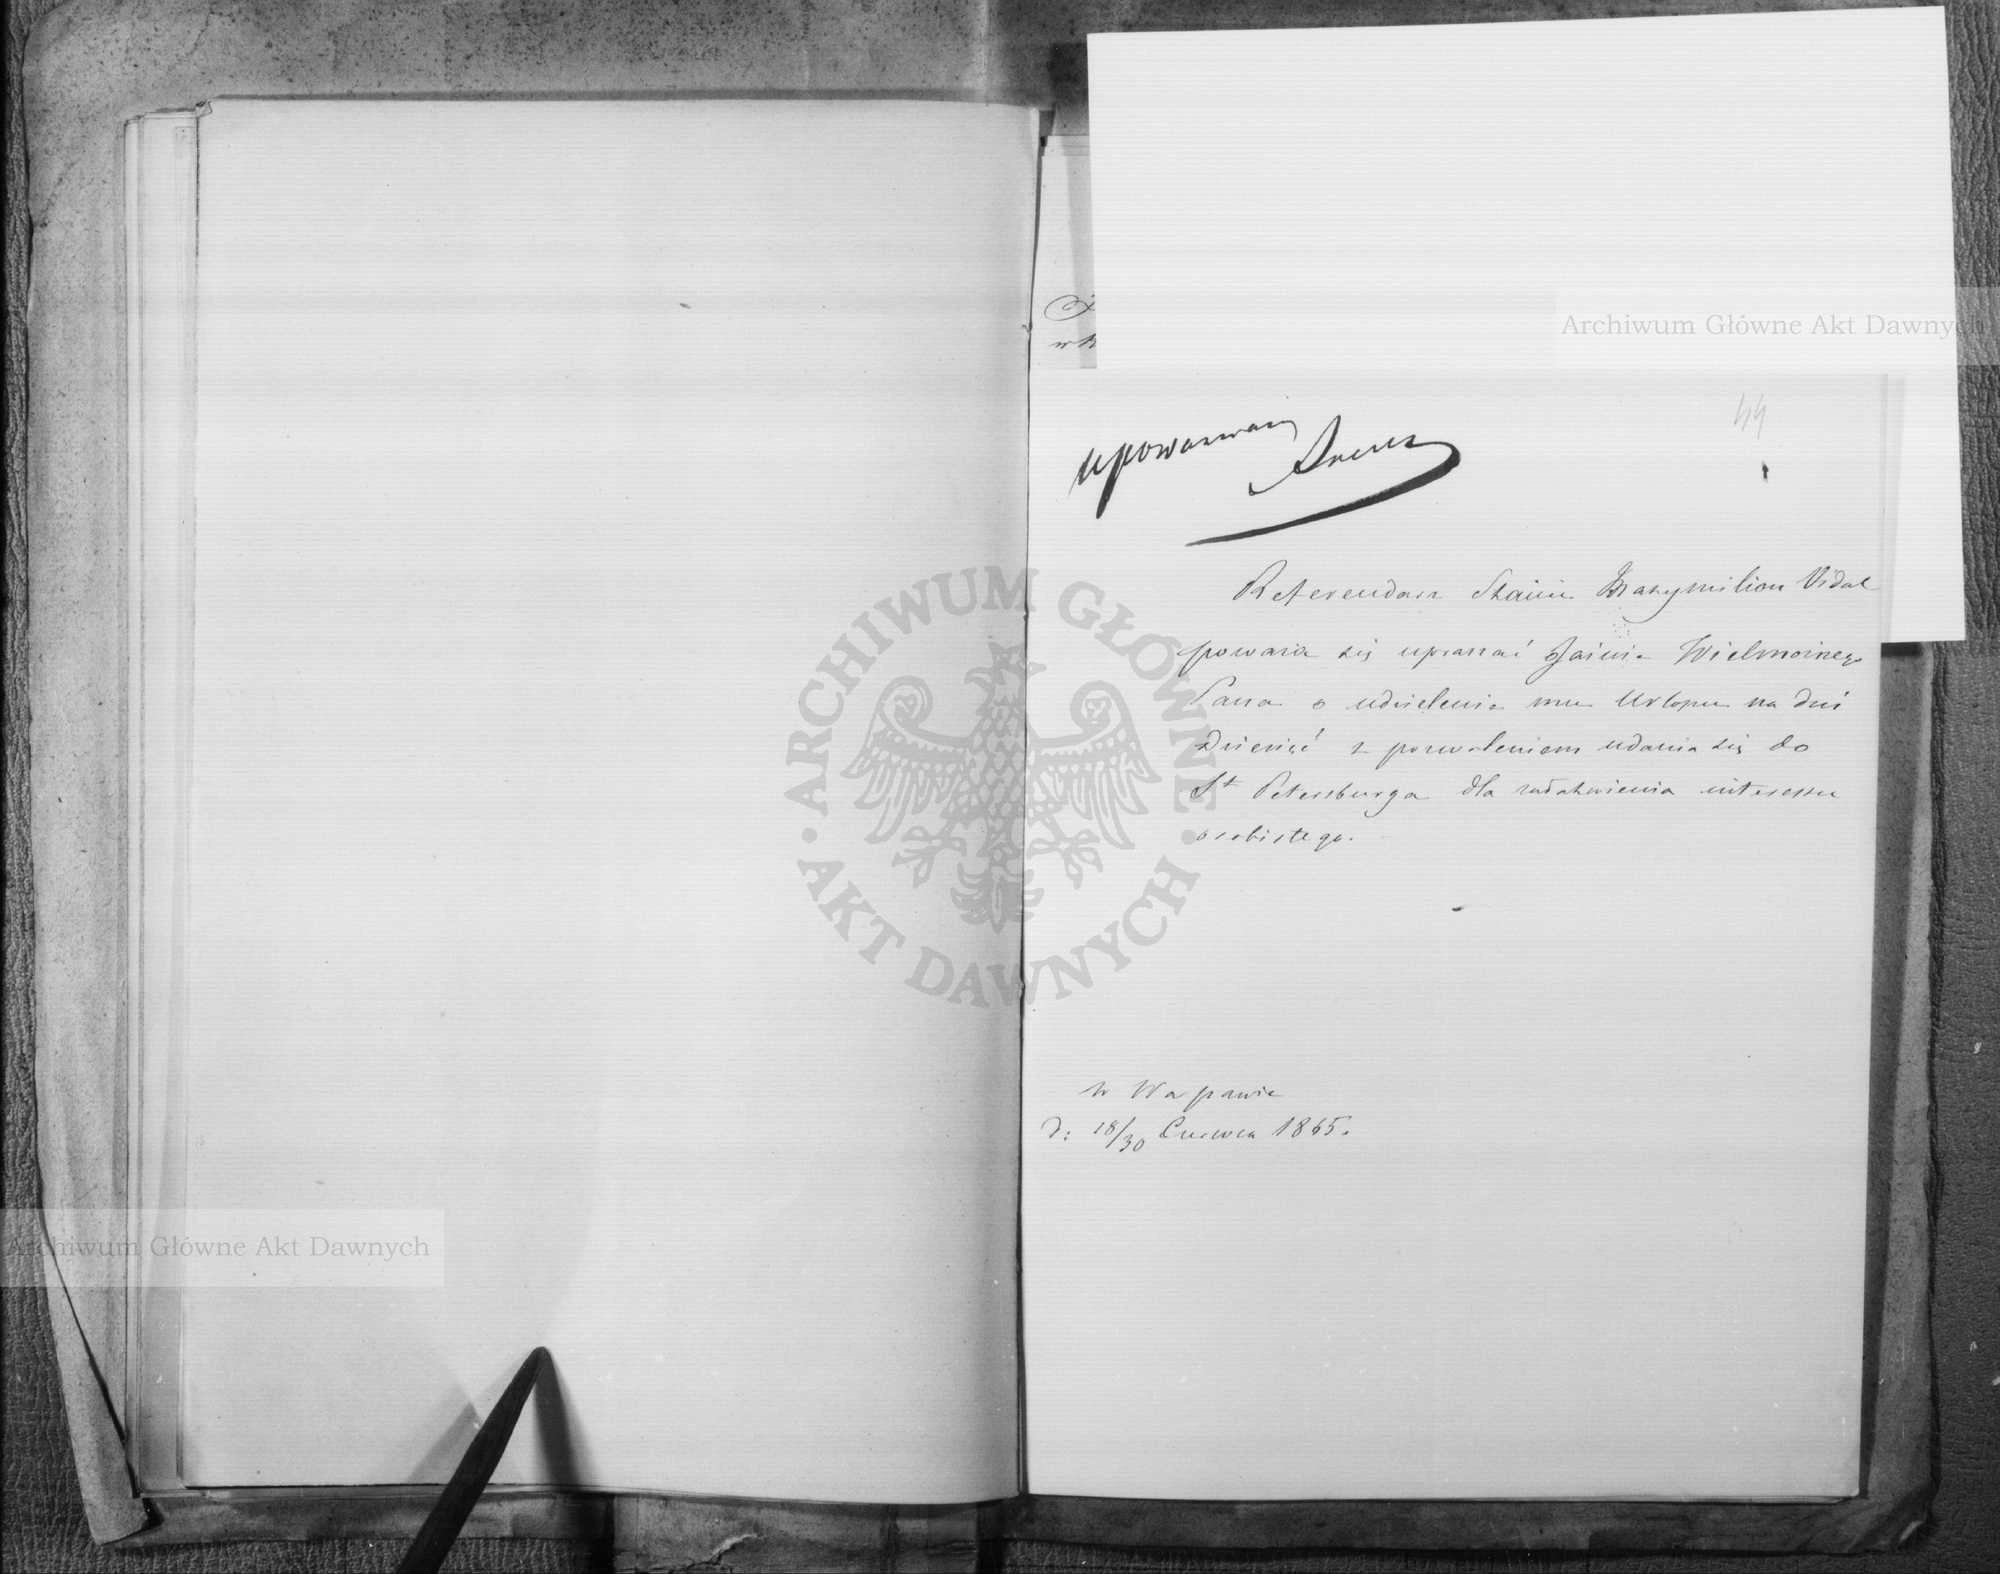 44
upoważnam
Referendarz Stanu Maxymilian Vidal
poważa się upraszać Jaśnie Wielmożnego
Pana o udzielenie mu Urlopu na dni
dziesięć z pozwoleniem udania się do
St Petersburga dla załatwienia interessu
osobistego.
w Warszawie
d: 18/30 Czerwca 1865.
Archiwum Główne Akt Dawnych
ARCHIWUM GŁÓWNE AKT DAWNYCH
Archiwum Główne Akt Dawnych